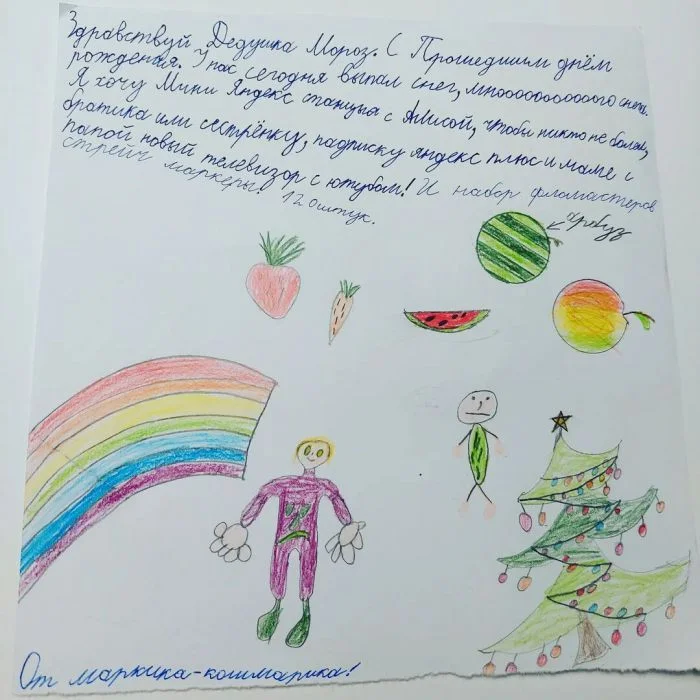 Здравствуй, Дедушка Мороз. С Прошедшим днём
рождения. У нас сегодня выпал снег, мноооооооооого снега.
Я хочу Мини Яндекс станция с Алисой, чтобы никто не болел,
братика или сестрёнку, падписку яндекс плюс и маме с
папой новый телевизор с ютубом! И набор фломастеров
стрейч маркеры! 120штук.
Арбуз
От марюика-кошмарика!